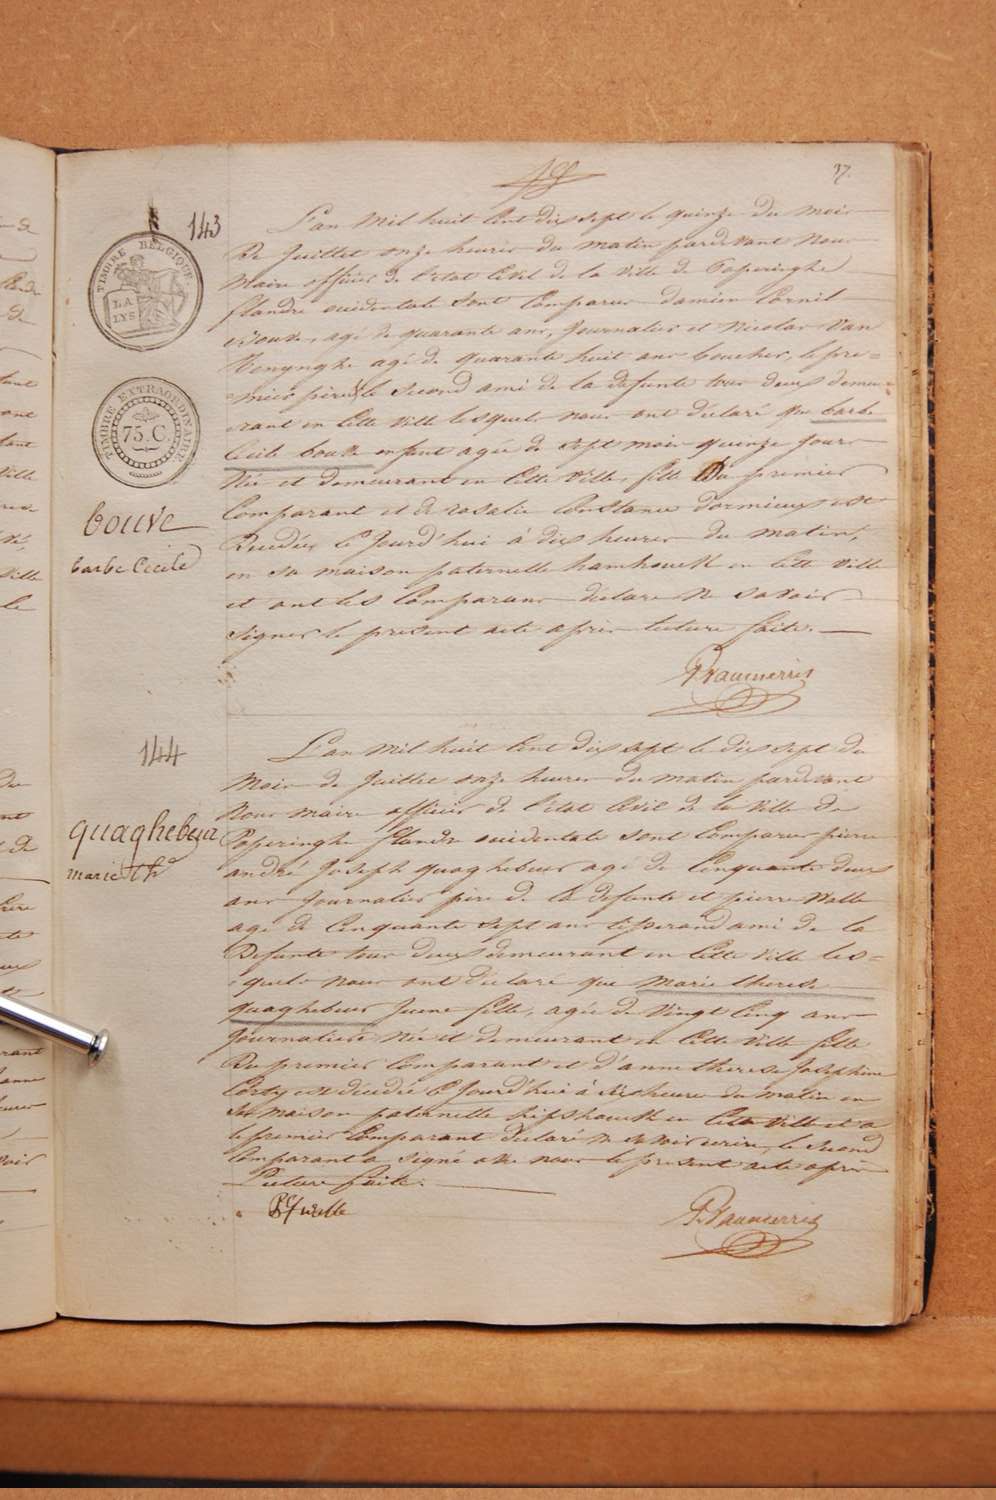 37.
143
TIMBRE BELGIQUE
LA
LYS
TIMBRE EXTRAORDINAIRE
75.C.
bouve
barbe Cecile
L'an mil huit Cent dix sept le quinze du mois
De Juillet onze heures du matin pardevant nous
maire officier de l'etat Civil de la ville de Poperinghe
flandre occidentale sont Comparus damien Cornil
Bouve, agé de quarante ans, Journalier et Nicolas Van
agé de quarante huit ans boucher, le pre=
mier père le second ami de la défunte tous deux demeu=
rant en Cette Ville lesquels nous ont déclaré que barbe
Cecile bouve enfant agée de sept mois quinze jours
Née et demeurant en Cette Ville, fille du premier
Comparant et de rosalie Constance dormieux est
Decedée Ce Jourd'hui à dix heures du matin,
en sa maison paternelle hamhouck en Cette Ville
et ont les Comparans déclaré ne savoir
signer le present acte après lecture faite.
144
quaghebeur
marie th.e
L'an mil huit Cent dix sept le dix sept du
Mois de Juillet onze heures du matin pardevant
Nous maire officier de l'etat Civil de la Ville de
Poperinghe flandre occidentale sont Comparus pierre
andré Joseph quaghebeur agé de Cinquante deux
ans Journalier père de la defunte et pierre Walle
agé de Cinquante sept ans tisserand ami de la
Defunte tous deux demeurant en Cette Ville les=
quels nous ont déclaré que marie therese
quaghebeur Jeune fille, agée de Vingt Cinq ans
Journalière née et demeurant en Cette Ville fille
Du premier Comparant et d'anne therese Josephine
est decedée Ce Jourd'hui à six heures du matin en
Sa maison paternelle en Cette Ville et a
le premier Comparant declaré ne savoir ecrire, le second
Comparant a signé avec nous le present acte après
Lecture faite.